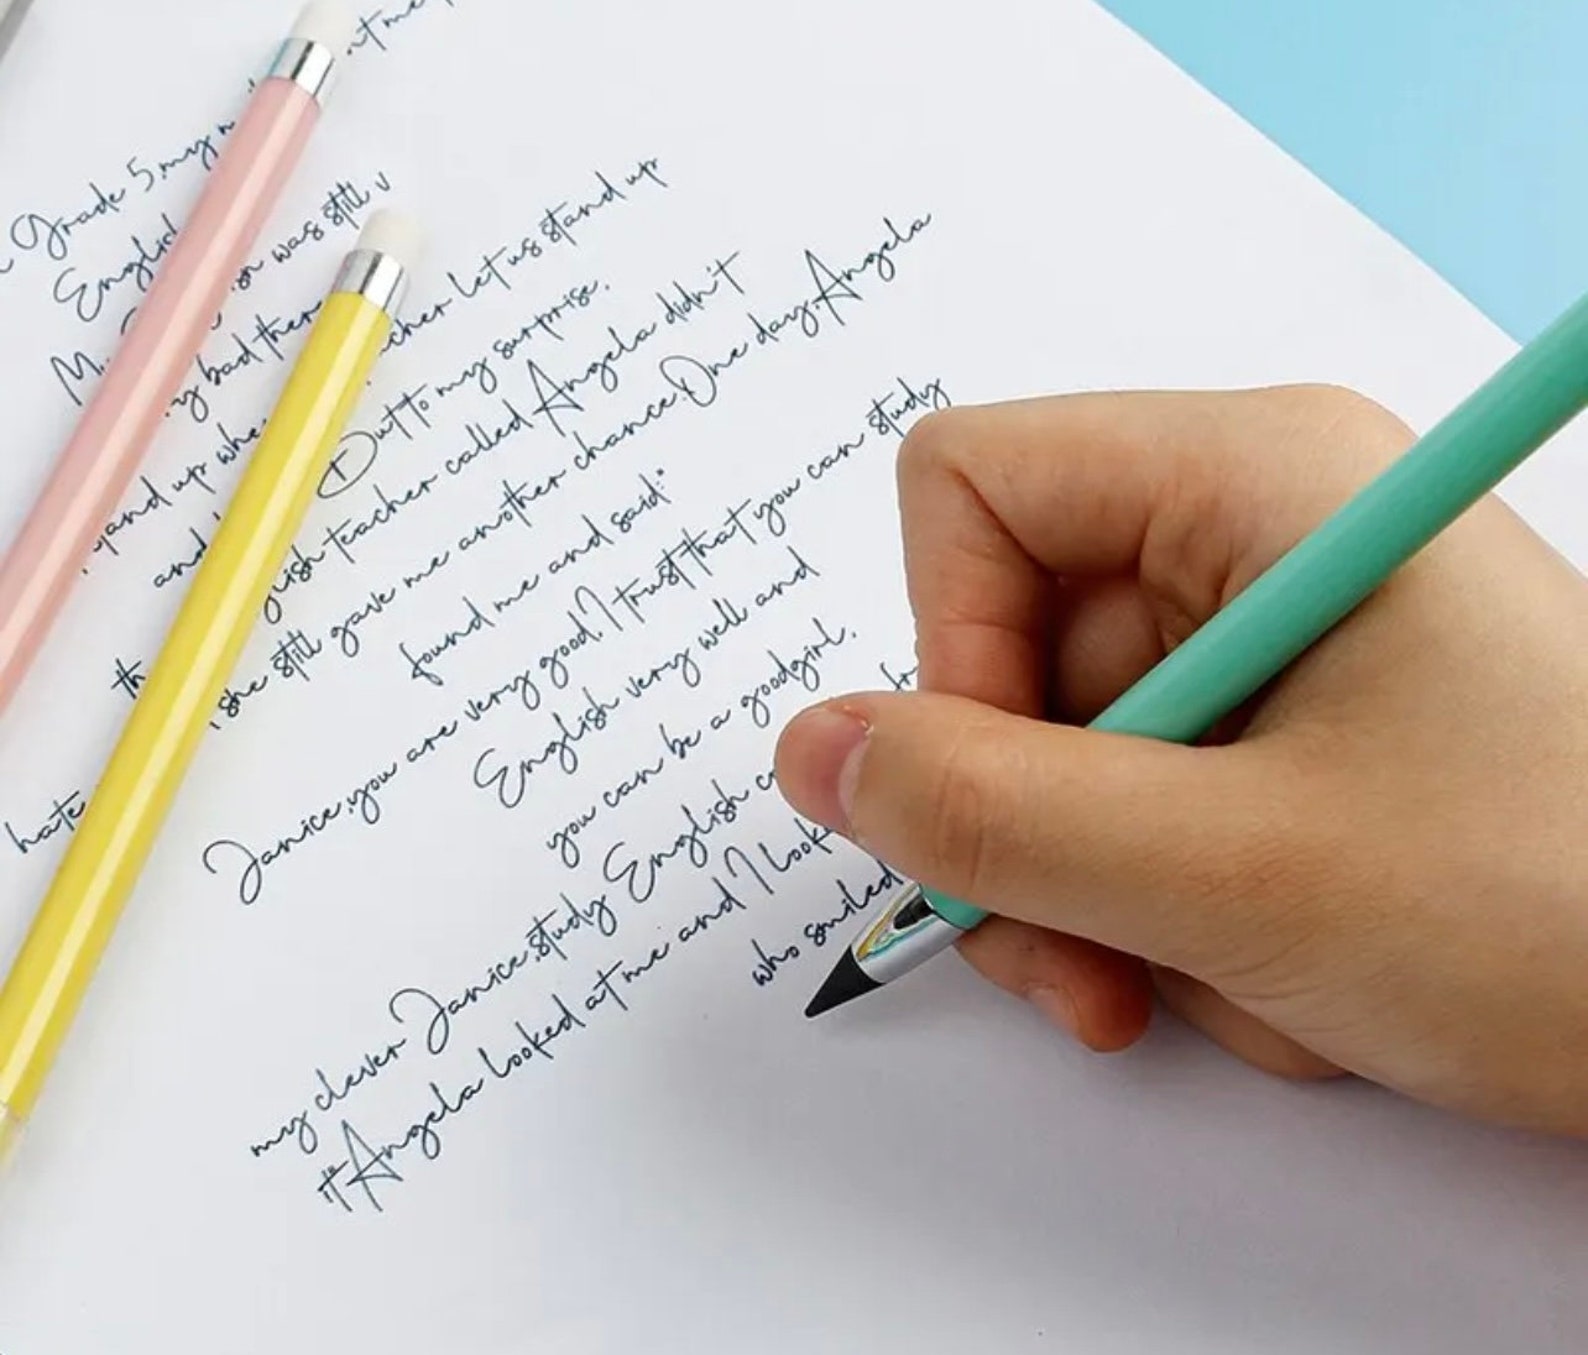 Grade 5, my
English was still
bad there teacher let us stand up
up But to my surprise.
and English teacher called Angela didn't
she still gave me another chance. One day, Angela
found me and said:"
hate Janice, you are very good. I trust that you can study
English very well and
you can be a goodgirl.
my clever Janice, study English
it" Angela looked at me and I look
who smiled